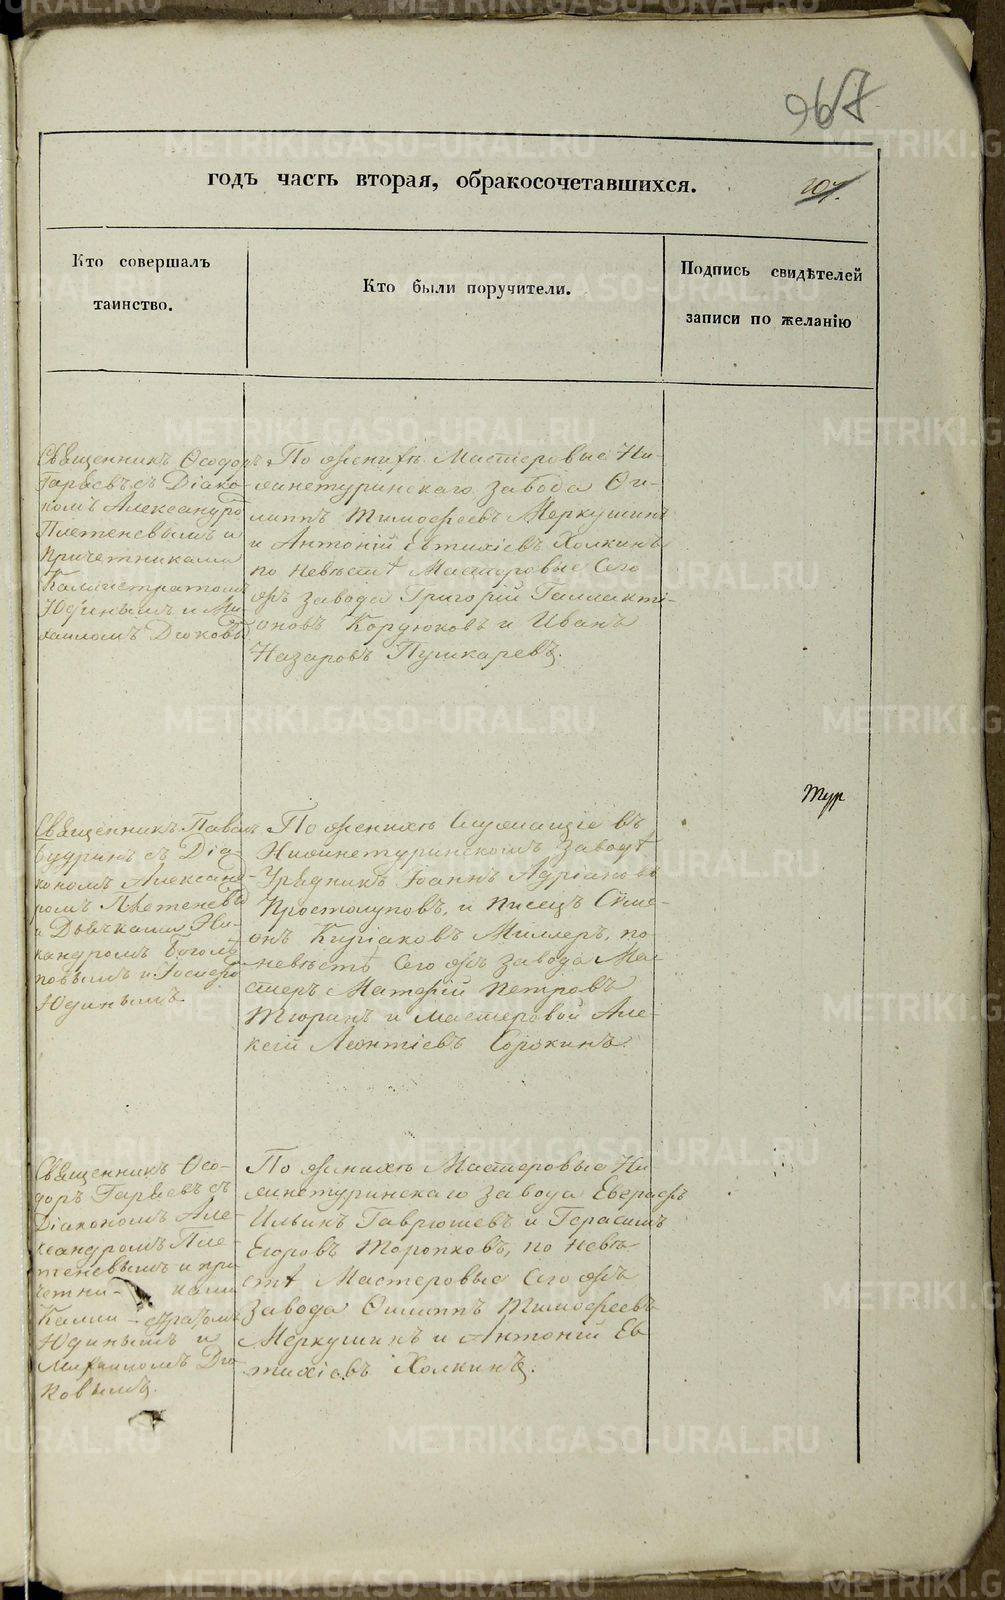 967
207.
годъ часть вторая, обракосочетавшихся.
Кто совершалъ
таинство.
Кто были поручители.
Подпись свидѣтелей
записи по желанію
Священникъ Ѳеодоръ
Гаряевъ съ Діако-
номъ Александро
Плетеневымъ и
Причетниками
Калистратомъ
Юдинымъ и Ми-
хаиломъ Дюковы
По женихѣ Мастеровые Ни-
жнетуринскаго завода Фи-
липпъ Тимофеевъ Меркушинъ
и Антоній Евтихіевъ Холкинъ
по невѣстѣ Мастеровые Сего
жъ завода Григорій Галлакті-
оновъ Кордюковъ и Иванъ
Назаровъ Пушкаревъ.
Тур
Священникъ Павелъ
Будринъ съ Діа-
кономъ Александ-
ромъ Плетеневы
и Дьячками Ни-
кандромъ Боголѣ-
повымъ и
Юдинымъ.
По женихѣ Служащіе въ
Нижнетуринскомъ заводѣ
Урядникъ Іоаннъ Адріановъ
Простолуповъ, и писецъ Сѵме-
онъ Киріаковъ Миллеръ, по
невѣстѣ Сего жъ завода Ма-
стеръ Матфій Петровъ
Тюринъ и мастеровой Але-
ксій Леонтіевъ Сорокинъ.
Священникъ Ѳео-
доръ Гаряевъ съ
Діакономъ Але-
ксандромъ Пле-
теневымъ и при
четни- ками
Калли- стратомъ
Юдинымъ и
Михаиломъ Дю-
ковымъ.
По женихѣ Мастеровые Ни
жнетуринскаго завода Евграфъ
Ильинъ Гаврюшевъ и Герасимъ
Егоровъ Торопковъ, по невѣ-
стѣ Мастеровые Сего жъ
завода Филиппъ Тимофеевъ
Меркушинъ и Антоній Ев
тихіевъ Холкинъ.
METRIKI.GASO-URAL.RU